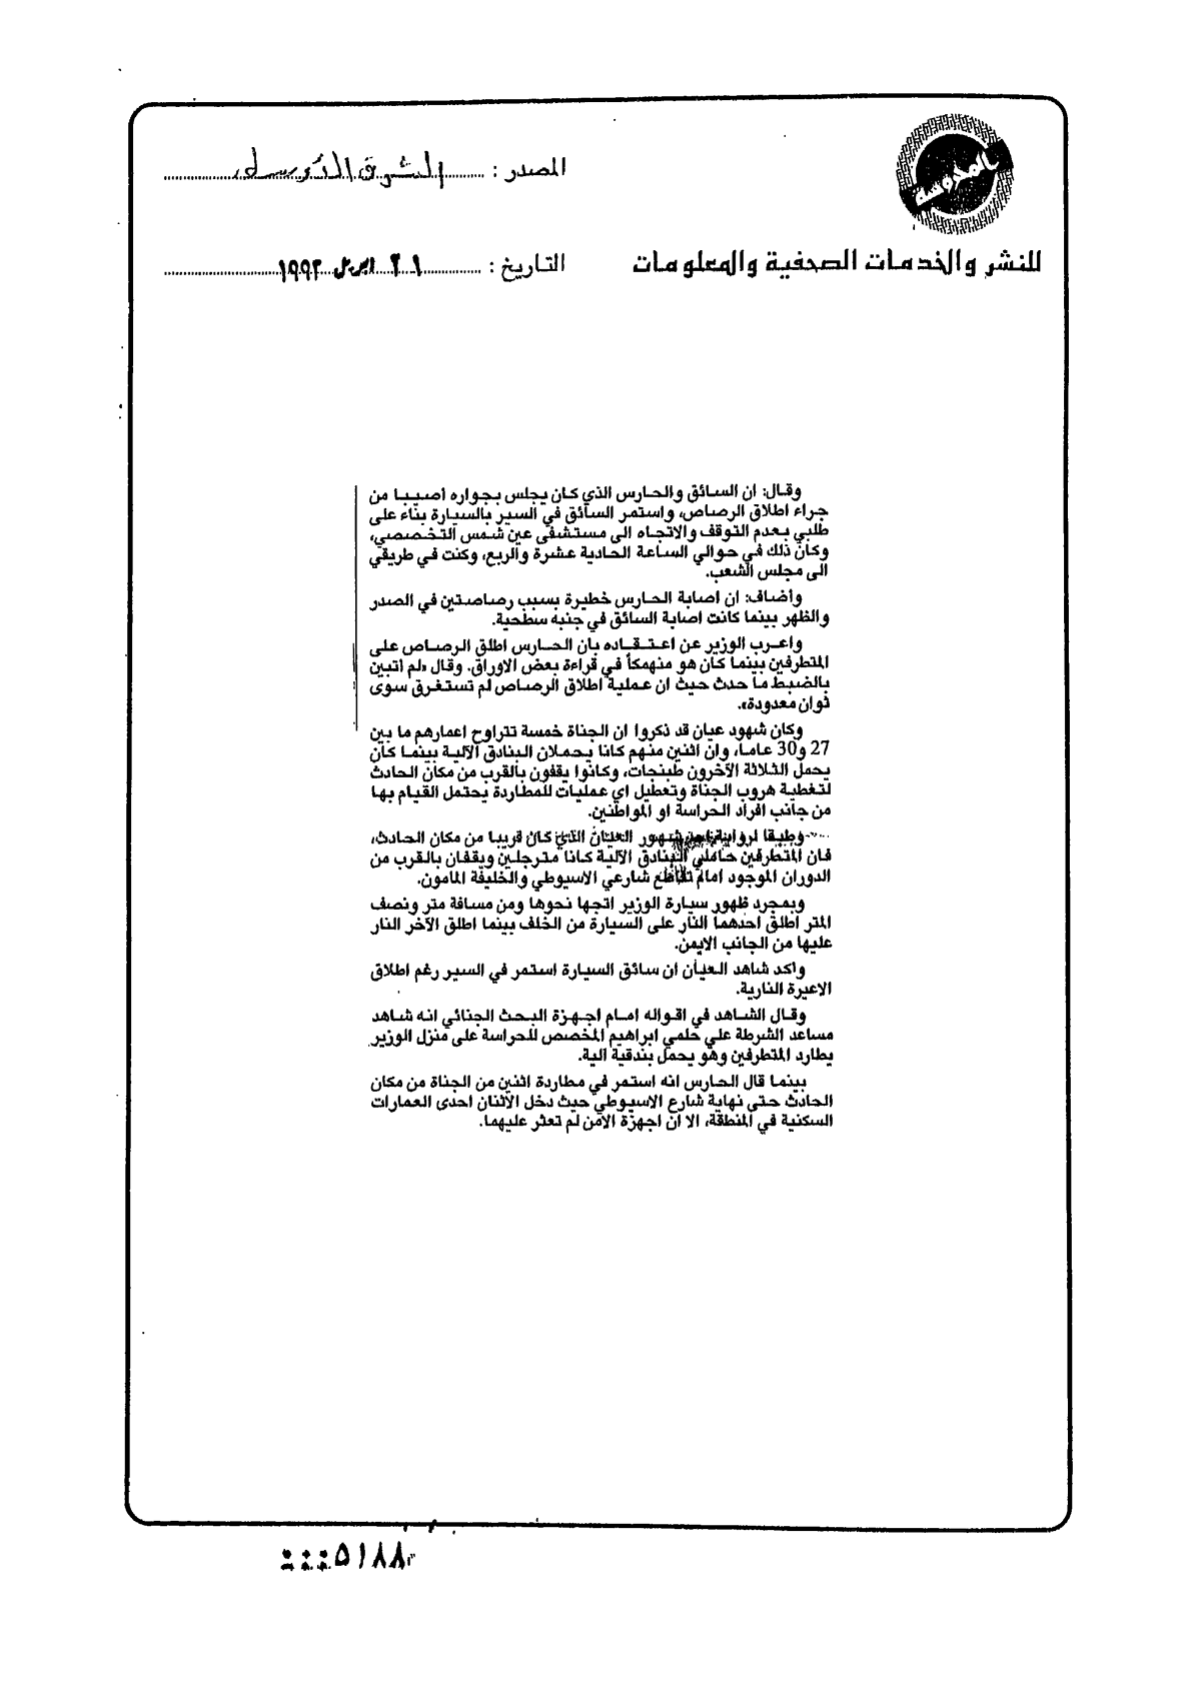 المصدر : الشرق الأوسط
للنشر والخدمات الصحفية والمعلومات
التاريخ : ٢١ ابريل ١٩٩٣
وقال: ان السائق والحارس الذي كان يجلس بجواره اصيبا من
جراء اطلاق الرصاص، واستمر السائق في السير بالسيارة بناء على
طلبي بعدم التوقف والاتجاه الى مستشفى عين شمس التخصصي،
وكان ذلك في حوالي الساعة الحادية عشرة والربع، وكنت في طريقي
الى مجلس الشعب.
واضاف: ان اصابة الحارس خطيرة بسبب رصاصتين في الصدر
والظهر بينما كانت اصابة السائق في جنبه سطحية.
واعرب الوزير عن اعتقاده بان الحارس اطلق الرصاص على
المتطرفين بينما كان هو منهمكاً في قراءة بعض الاوراق. وقال «لم اتبين
بالضبط ما حدث حيث ان عملية اطلاق الرصاص لم تستغرق سوى
ثوان معدودة».
وكان شهود عيان قد ذكروا ان الجناة خمسة تتراوح اعمارهم ما بين
27 و30 عاما، وان اثنين منهم كانا يحملان البنادق الآلية بينما كان
يحمل الثلاثة الآخرون طبنجات، وكانوا يقفون بالقرب من مكان الحادث
لتغطية هروب الجناة وتعطيل اي عمليات للمطاردة يحتمل القيام بها
من جانب افراد الحراسة او المواطنين.
وطبقا لرواية احد شهود العيان الذي كان قريبا من مكان الحادث،
فان المتطرفين حاملي البنادق الآلية كانا مترجلين ويقفان بالقرب من
الدوران الموجود امام تقاطع شارعي الاسيوطي والخليفة المأمون.
وبمجرد ظهور سيارة الوزير اتجها نحوها ومن مسافة متر ونصف
المتر اطلق احدهما النار على السيارة من الخلف بينما اطلق الآخر النار
عليها من الجانب الايمن.
واكد شاهد العيان ان سائق السيارة استمر في السير رغم اطلاق
الاعيرة النارية.
وقال الشاهد في اقواله امام اجهزة البحث الجنائي انه شاهد
مساعد الشرطة علي حلمي ابراهيم المخصص للحراسة على منزل الوزير
يطارد المتطرفين وهو يحمل بندقية الية.
بينما قال الحارس انه استمر في مطاردة اثنين من الجناة من مكان
الحادث حتى نهاية شارع الاسيوطي حيث دخل الاثنان احدى العمارات
السكنية في المنطقة، الا ان اجهزة الامن لم تعثر عليهما.
٥١٨٨